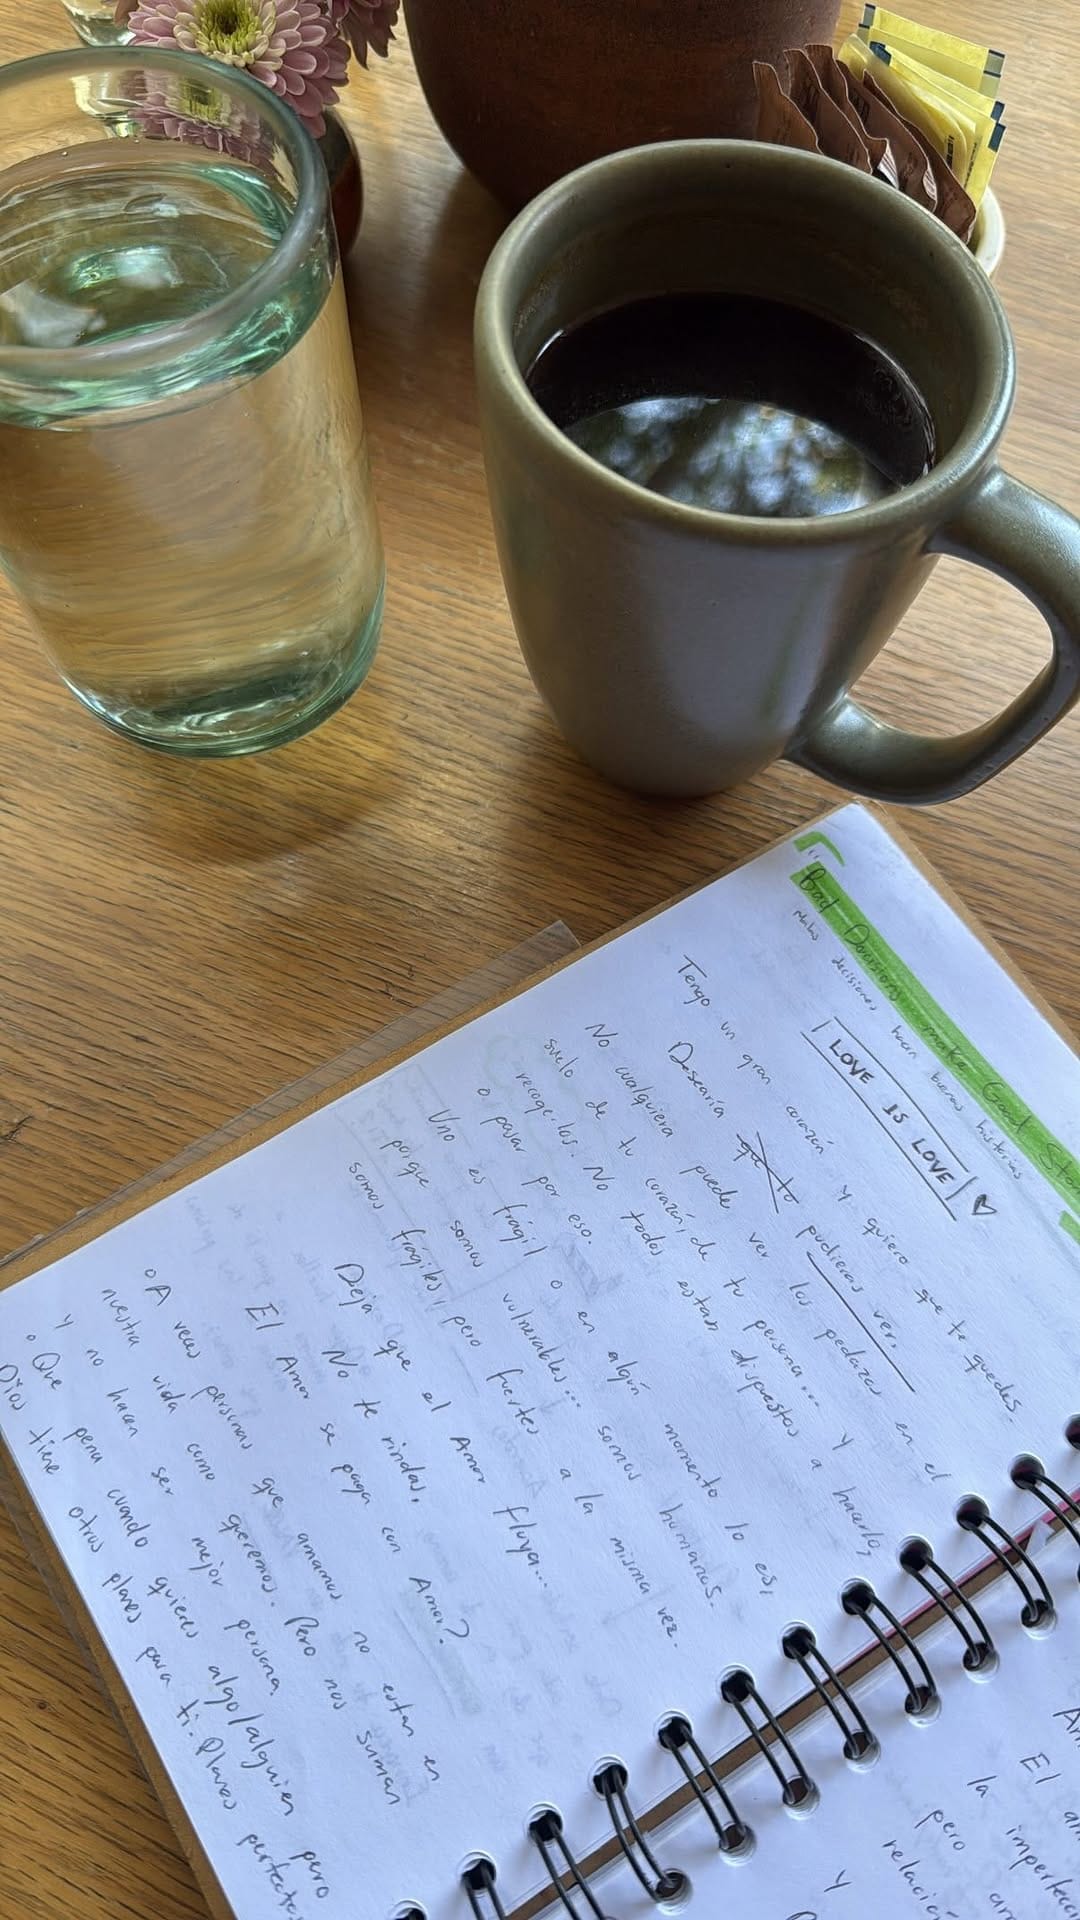 "Bad Decisions make Good Sto
Malas decisiones hacen buenas historias
| LOVE IS LOVE |
Tengo un gran corazón y quiero que te quedes.
Desearía que to pudieras ver.
No cualquiera puede ver los pedazos en el
suelo de tu corazón, de tu persona... y
recogerlos. No todos estan dispuestos a hacerlo,
o pasar por eso.
Uno es frágil o en algún momento lo es,
porque somos vulnerables... somos humanos.
somos frágiles, pero fuertes a la misma vez.
Deja que el Amor fluya...
No te rindas.
El Amor se paga con Amor?
A veces personas que amamos no estan en
nuestra vida como queremos. Pero nos suman
y no hacen ser mejor persona.
Que pena cuando quieres algo/alguien pero
Dios tiene otros planes para ti. Planes perfectos
El am
la imperfecc
pero am
relació
y